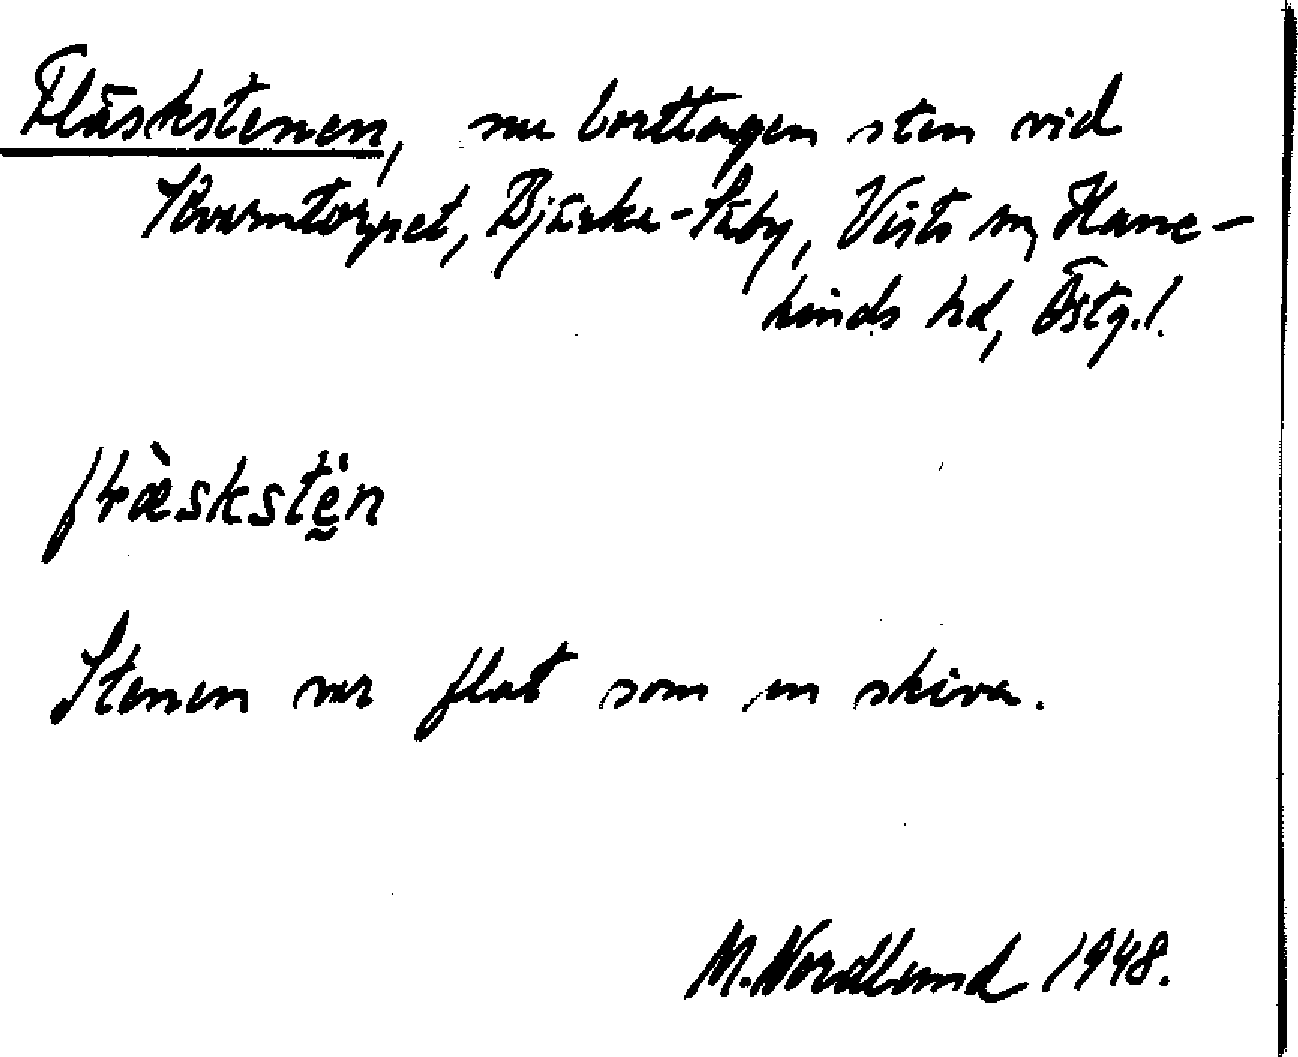 Fläskstenen, nu borttagen sten vid
Kvarntorpet, Bjärka-Säby, Vists sn, Hane-
kinds hd, Östg.l.
flæskstèn
Stenen var flat som en skiva.
M. Nordlund 1948.